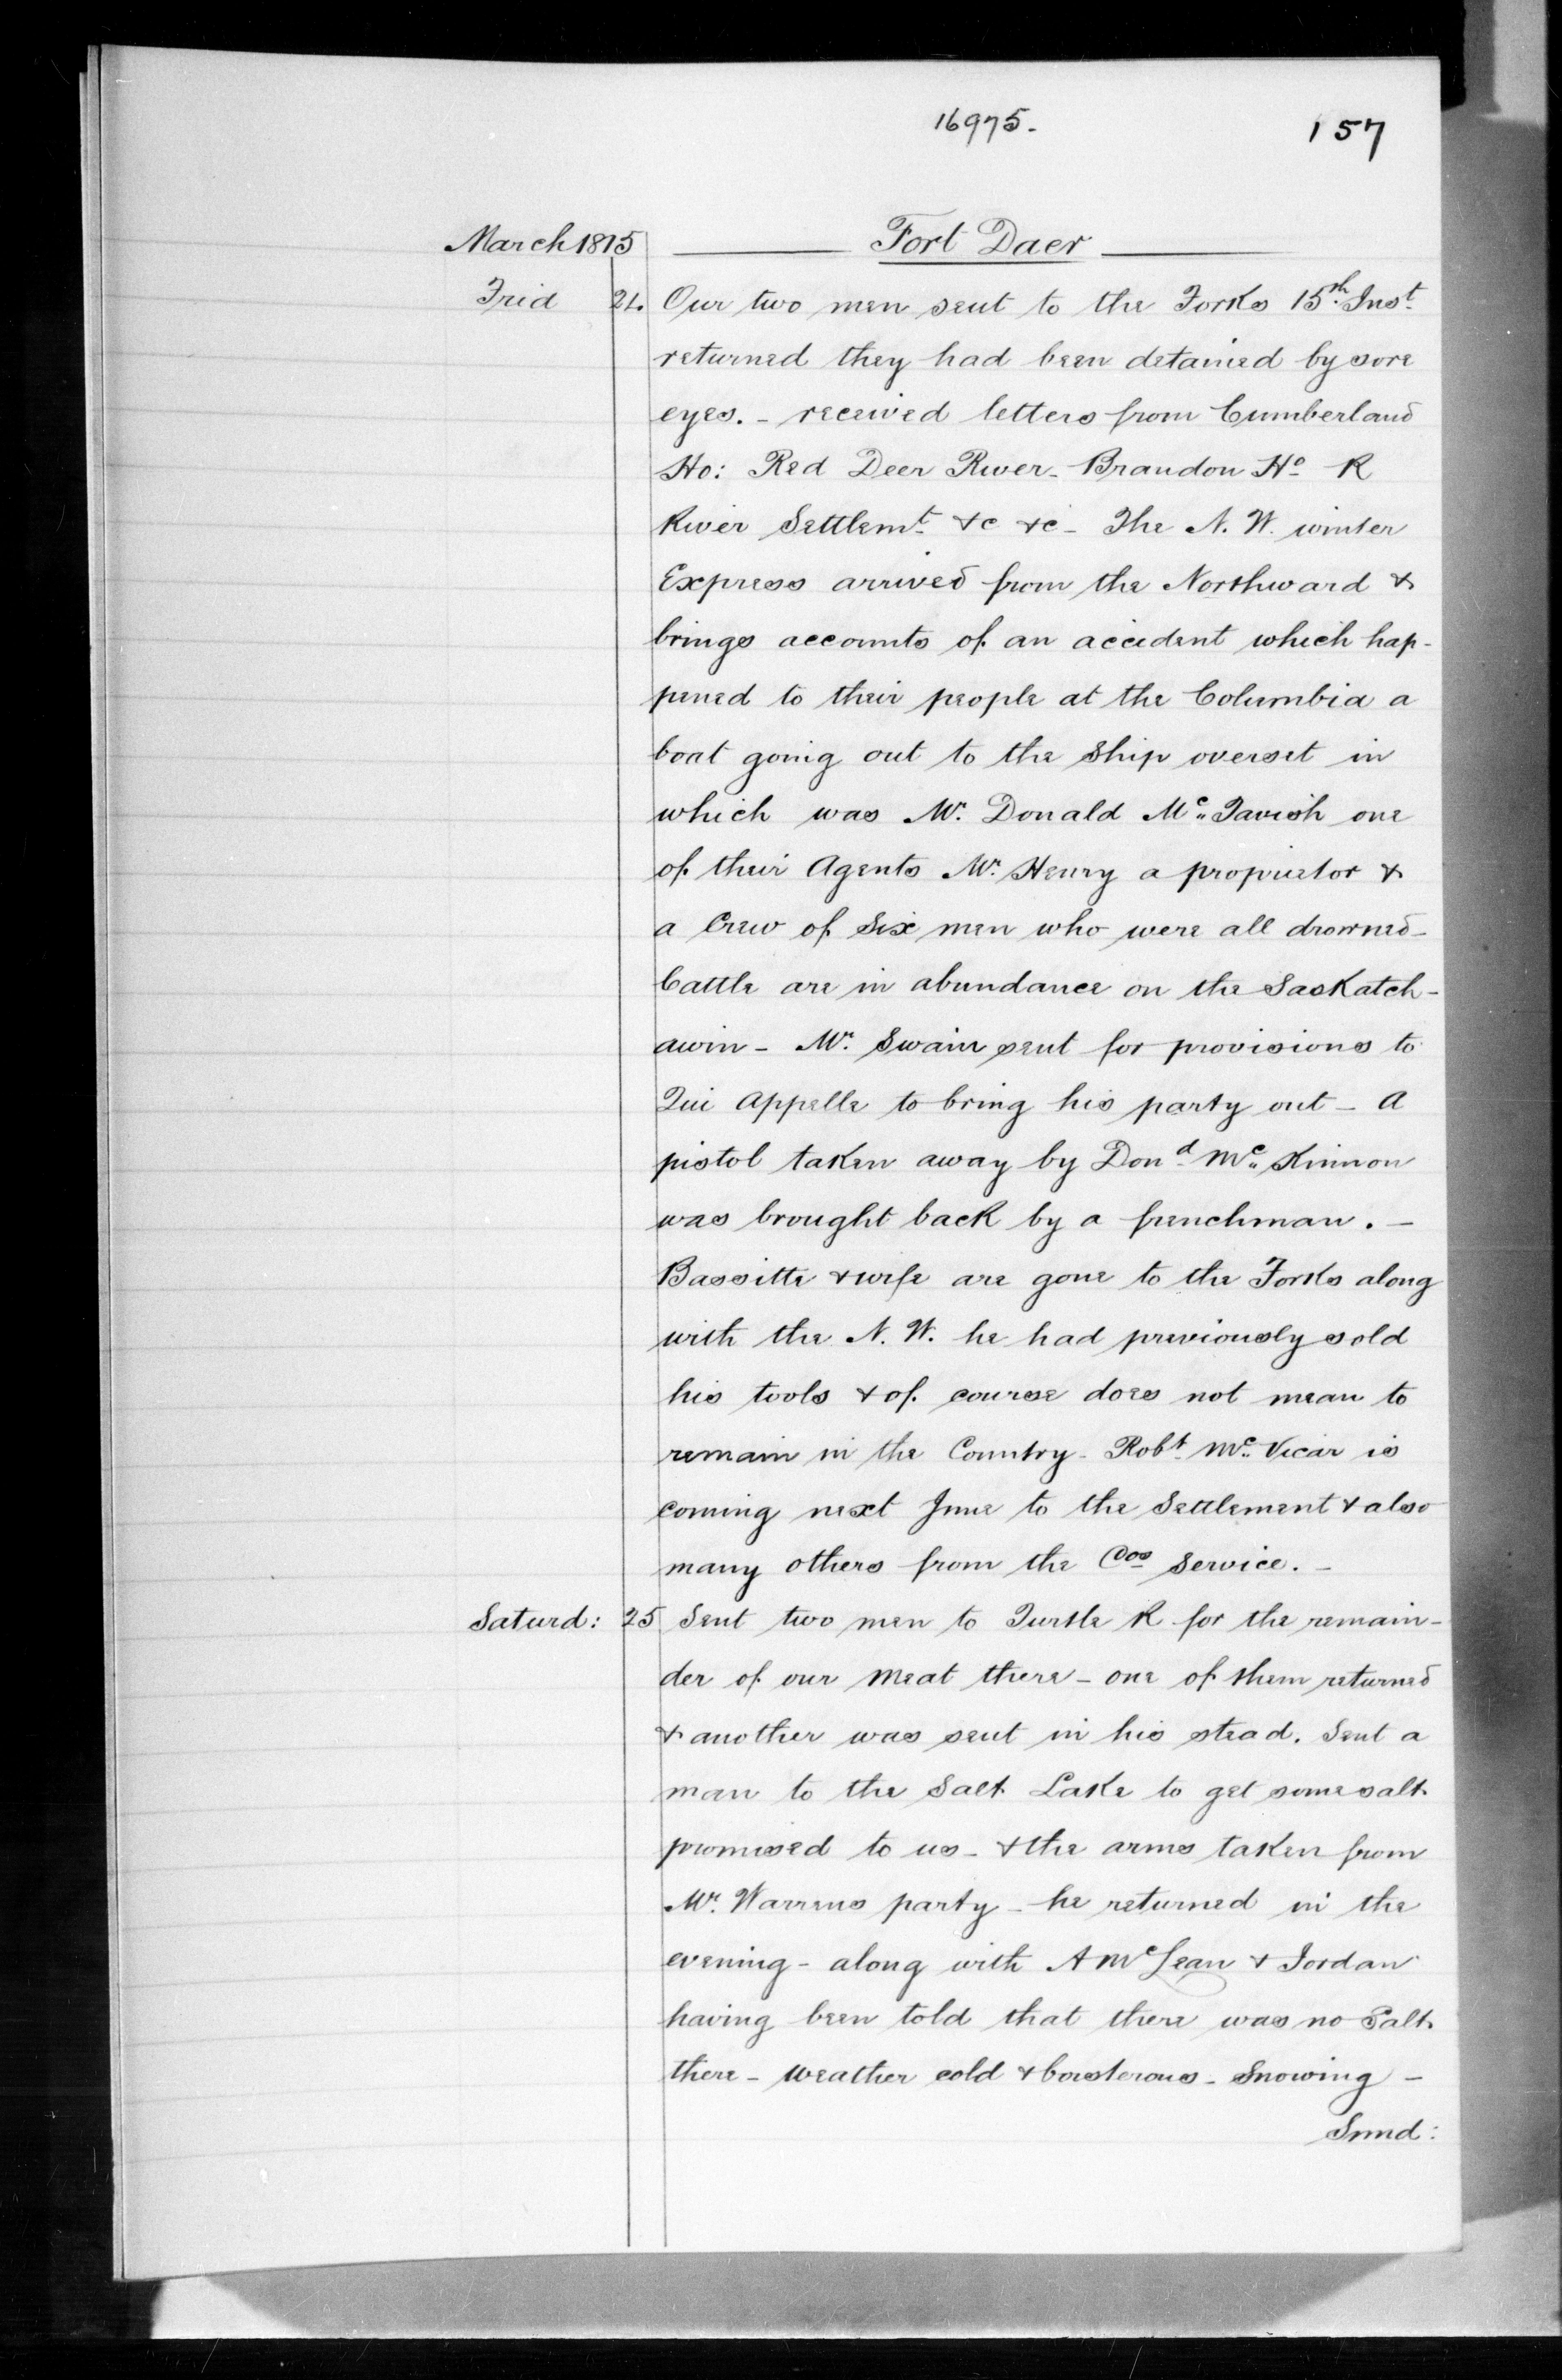 16975.
157
March 1815
Fort Daer
Frid 24. Our two men sent to the Forks 15th Inst
returned they had been detained by sore
eyes. - received letters from Cumberland
Ho: Red Deer River - Brandon Ho - R
River Settlemt &c &c - The N. W. winter
Express arrived from the Northward &
brings accounts of an accident which hap-
pened to their people at the Columbia a
boat going out to the Ship overset in
which was Mr. Donald Mc Tavish one
of their Agents Mr. Henry a proprietor &
a Crew of Six men who were all drowned -
Cattle are in abundance on the Saskatch-
awin - Mr. Swain sent for provisions to
Qui Appelle to bring his party out - A
pistol taken away by Dond Mc Kinnon
was brought back by a frenchman. -
Bassitte & wife are gone to the Forks along
with the N. W. he had previously sold
his tools & of course does not mean to
remain in the Country - Robt Mc Vicar is
coming next June to the Settlement & also
many others from the Cos Service. -
Saturd: 25 Sent two men to Turtle R for the remain-
der of our meat there - one of them returned
& another was sent in his stead. Sent a
man to the Salt Lake to get some salt
promised to us - & the arms taken from
Mr. Warrens party - he returned in the
evening - along with A McLean & Jordan
having been told that there was no Salt
there - weather cold & boisterous - Snowing -
Sund: